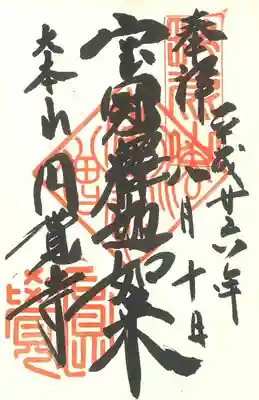 奉拝
平成廿六年
八月十日
宝冠釋迦如来
大本山
円覺寺